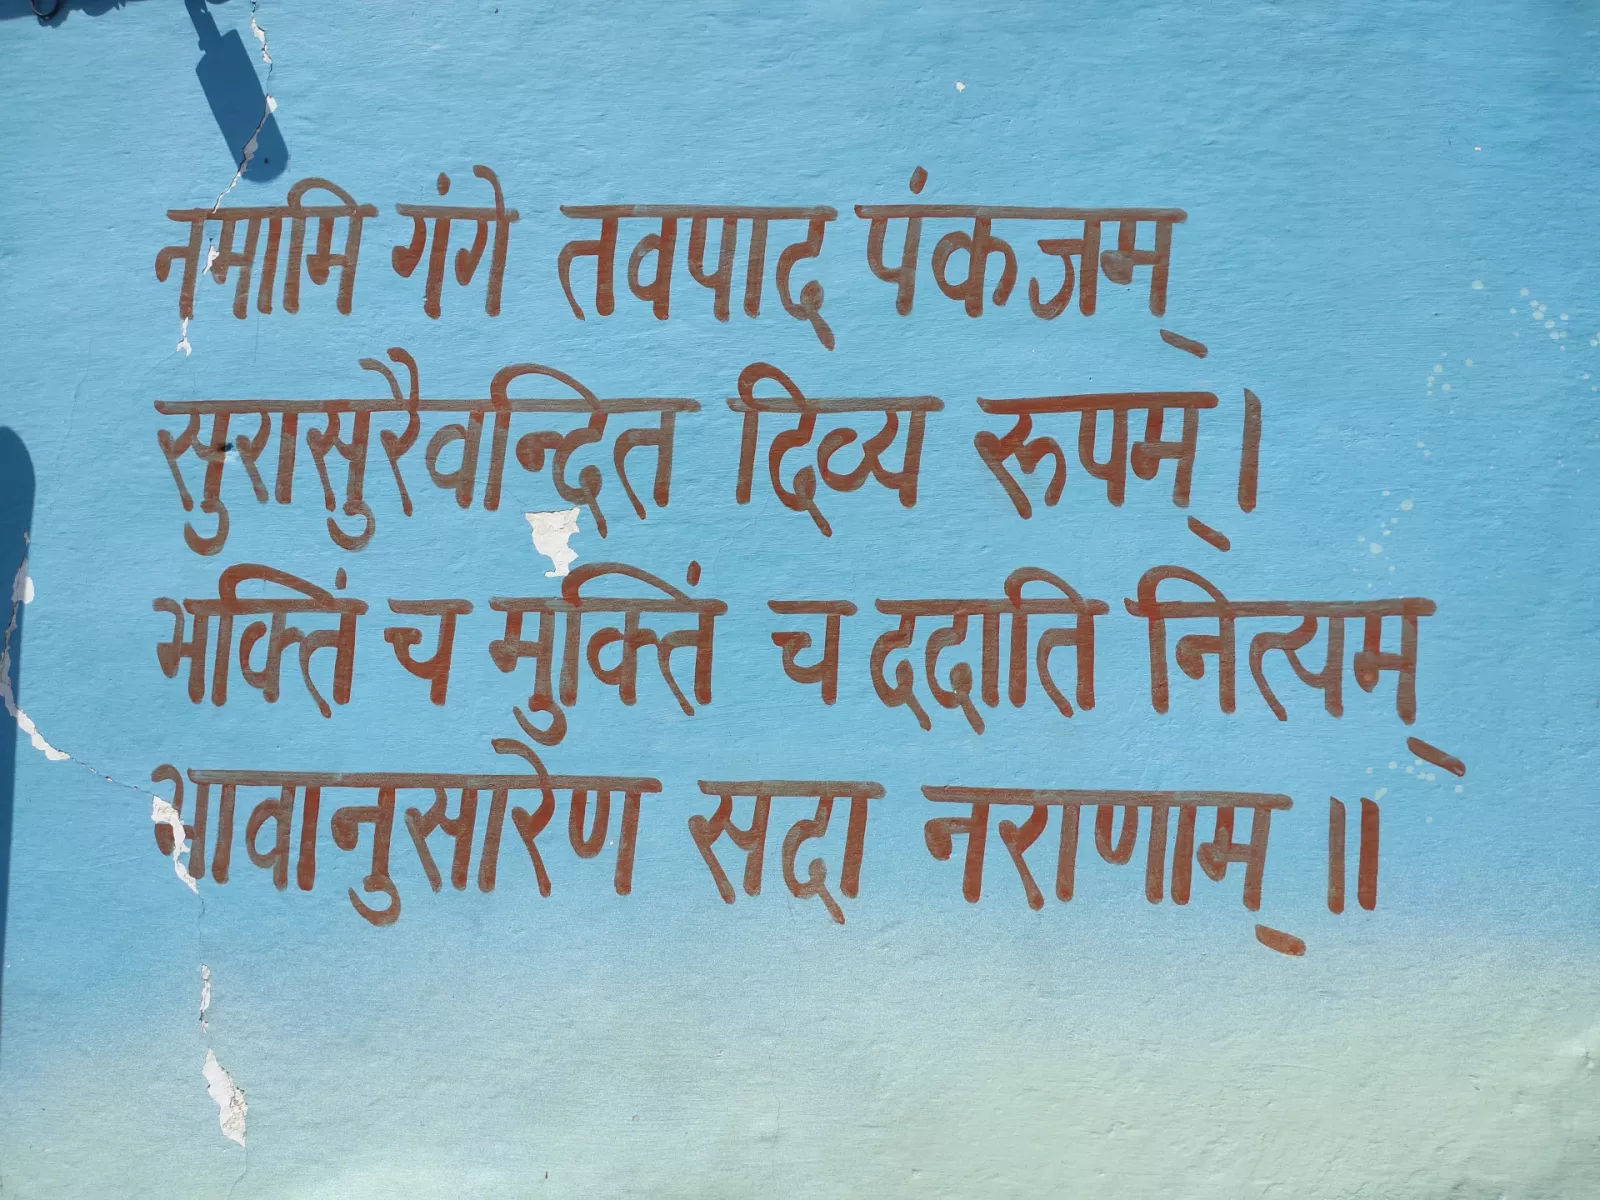 नमामि गंगे तवपाद पंकजम्
सुरासुरैवन्दित दिव्य रूपम्।
भक्तिं च मुक्तिं च ददाति नित्यम्
भावानुसारेण सदा नराणाम्॥